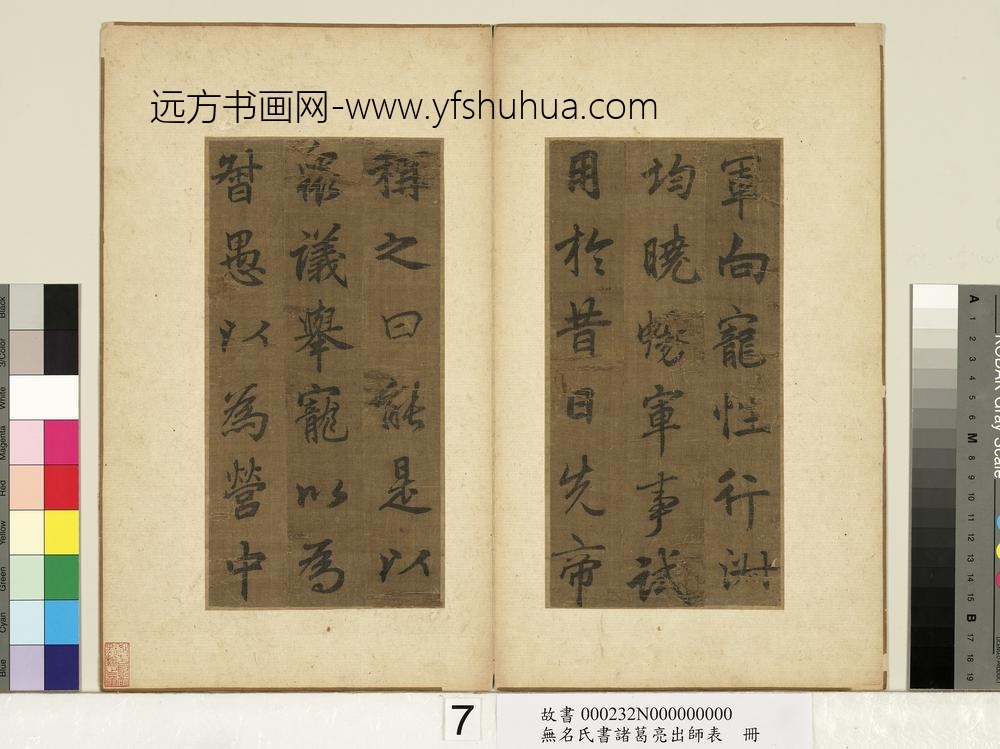 远方书画网-www.yfshuhua.com
軍向寵性行淑
均曉暢軍事試
用於昔日先帝
稱之曰能是以
眾議舉寵以為
督愚以為營中
7
故書 000232N000000000
無名氏書諸葛亮出師表 冊
Black
3/Color
White
Magenta
Red
Yellow
Green
Cyan
Blue
Gray Scale
A 1 2 3 4 5 6 M 8 9 10 11 12 13 14 15 B 17 18 19